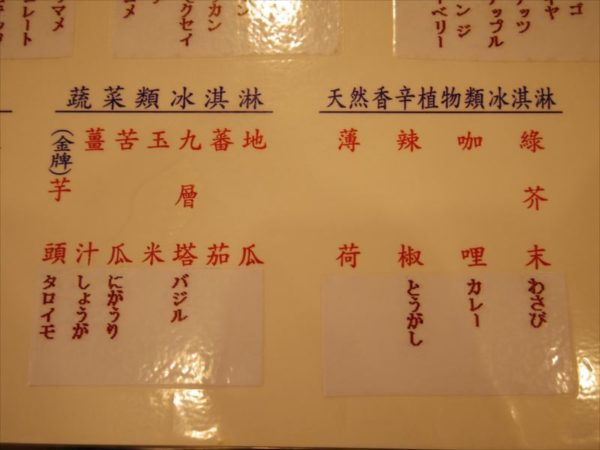 マメ
レート
クセイ
カン
ン
ンジ
ベリー
アップル
ナッツ
ヤ
ゴ
蔬菜類冰淇淋
地瓜
蕃茄
九層塔
バジル
玉米
苦瓜
にがうり
薑汁
しょうが
(金牌)芋頭
タロイモ
天然香辛植物類冰淇淋
綠芥末
わさび
咖哩
カレー
辣椒
とうがし
薄荷